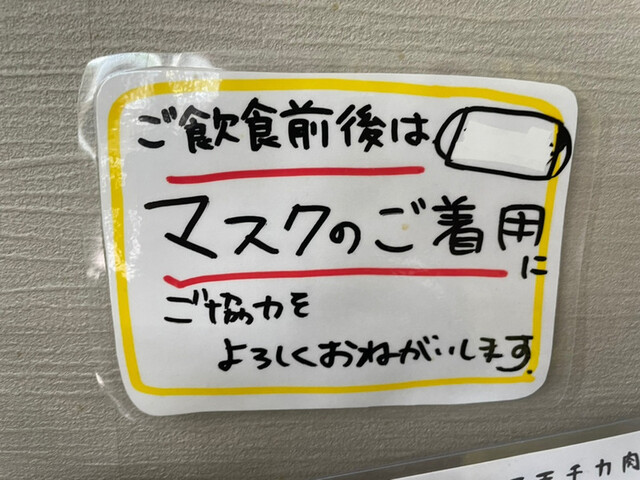 ご飲食前後は
マスクのご着用に
ご協力を
よろしくおねがいします.
チカ肉